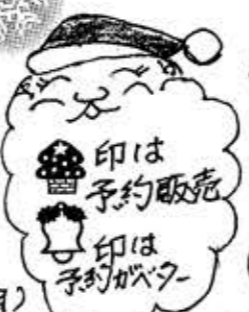 印は
予約販売
印は
予約がベター